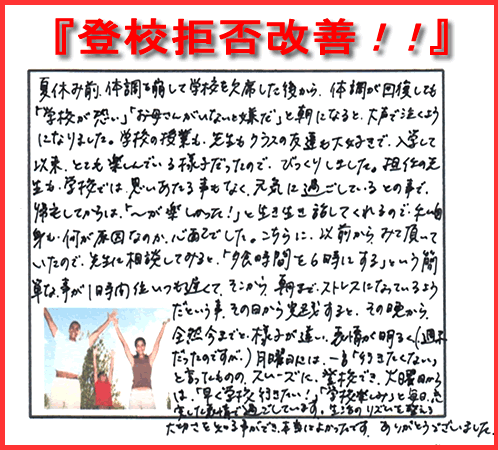 『登校拒否改善！！』
夏休み前、体調を崩して学校を欠席した後から、体調が回復しても
「学校が恐い」「お母さんがいないと嫌だ」と朝になると、大声で泣くよう
になりました。学校の授業も、先生もクラスの友達も大好きで、入学して
以来、とても楽しんでいる様子だったので、びっくりしました。担任の先
生も、学校では思いあたる事もなく、元気に過ごしているとの事で、
帰宅してからは、「〜が楽しかった！」と生き生き話してくれるので、私自
身も何が原因なのか、心配でした。こちらに、以前から、みて頂いて
いたので、先生に相談してみると、「夕食時間を6時にする」という簡
単な事が1日時間位いつも遅くて、そこから、朝まで、ストレスになっているよう
だという事、その日から実践すると、その晩から、
全然今までと様子が違い、表情が明るく、(週末
だったのですが、)月曜日には、一言「行きたくない」
と言ったものの、スムーズに、登校でき、火曜日から
は、「早く学校行きたい！」「学校楽しみ」と毎日、
した表情で過ごしています。生活のリズムを整える
大切さを知る事ができ、本当によかったです。ありがとうございました。